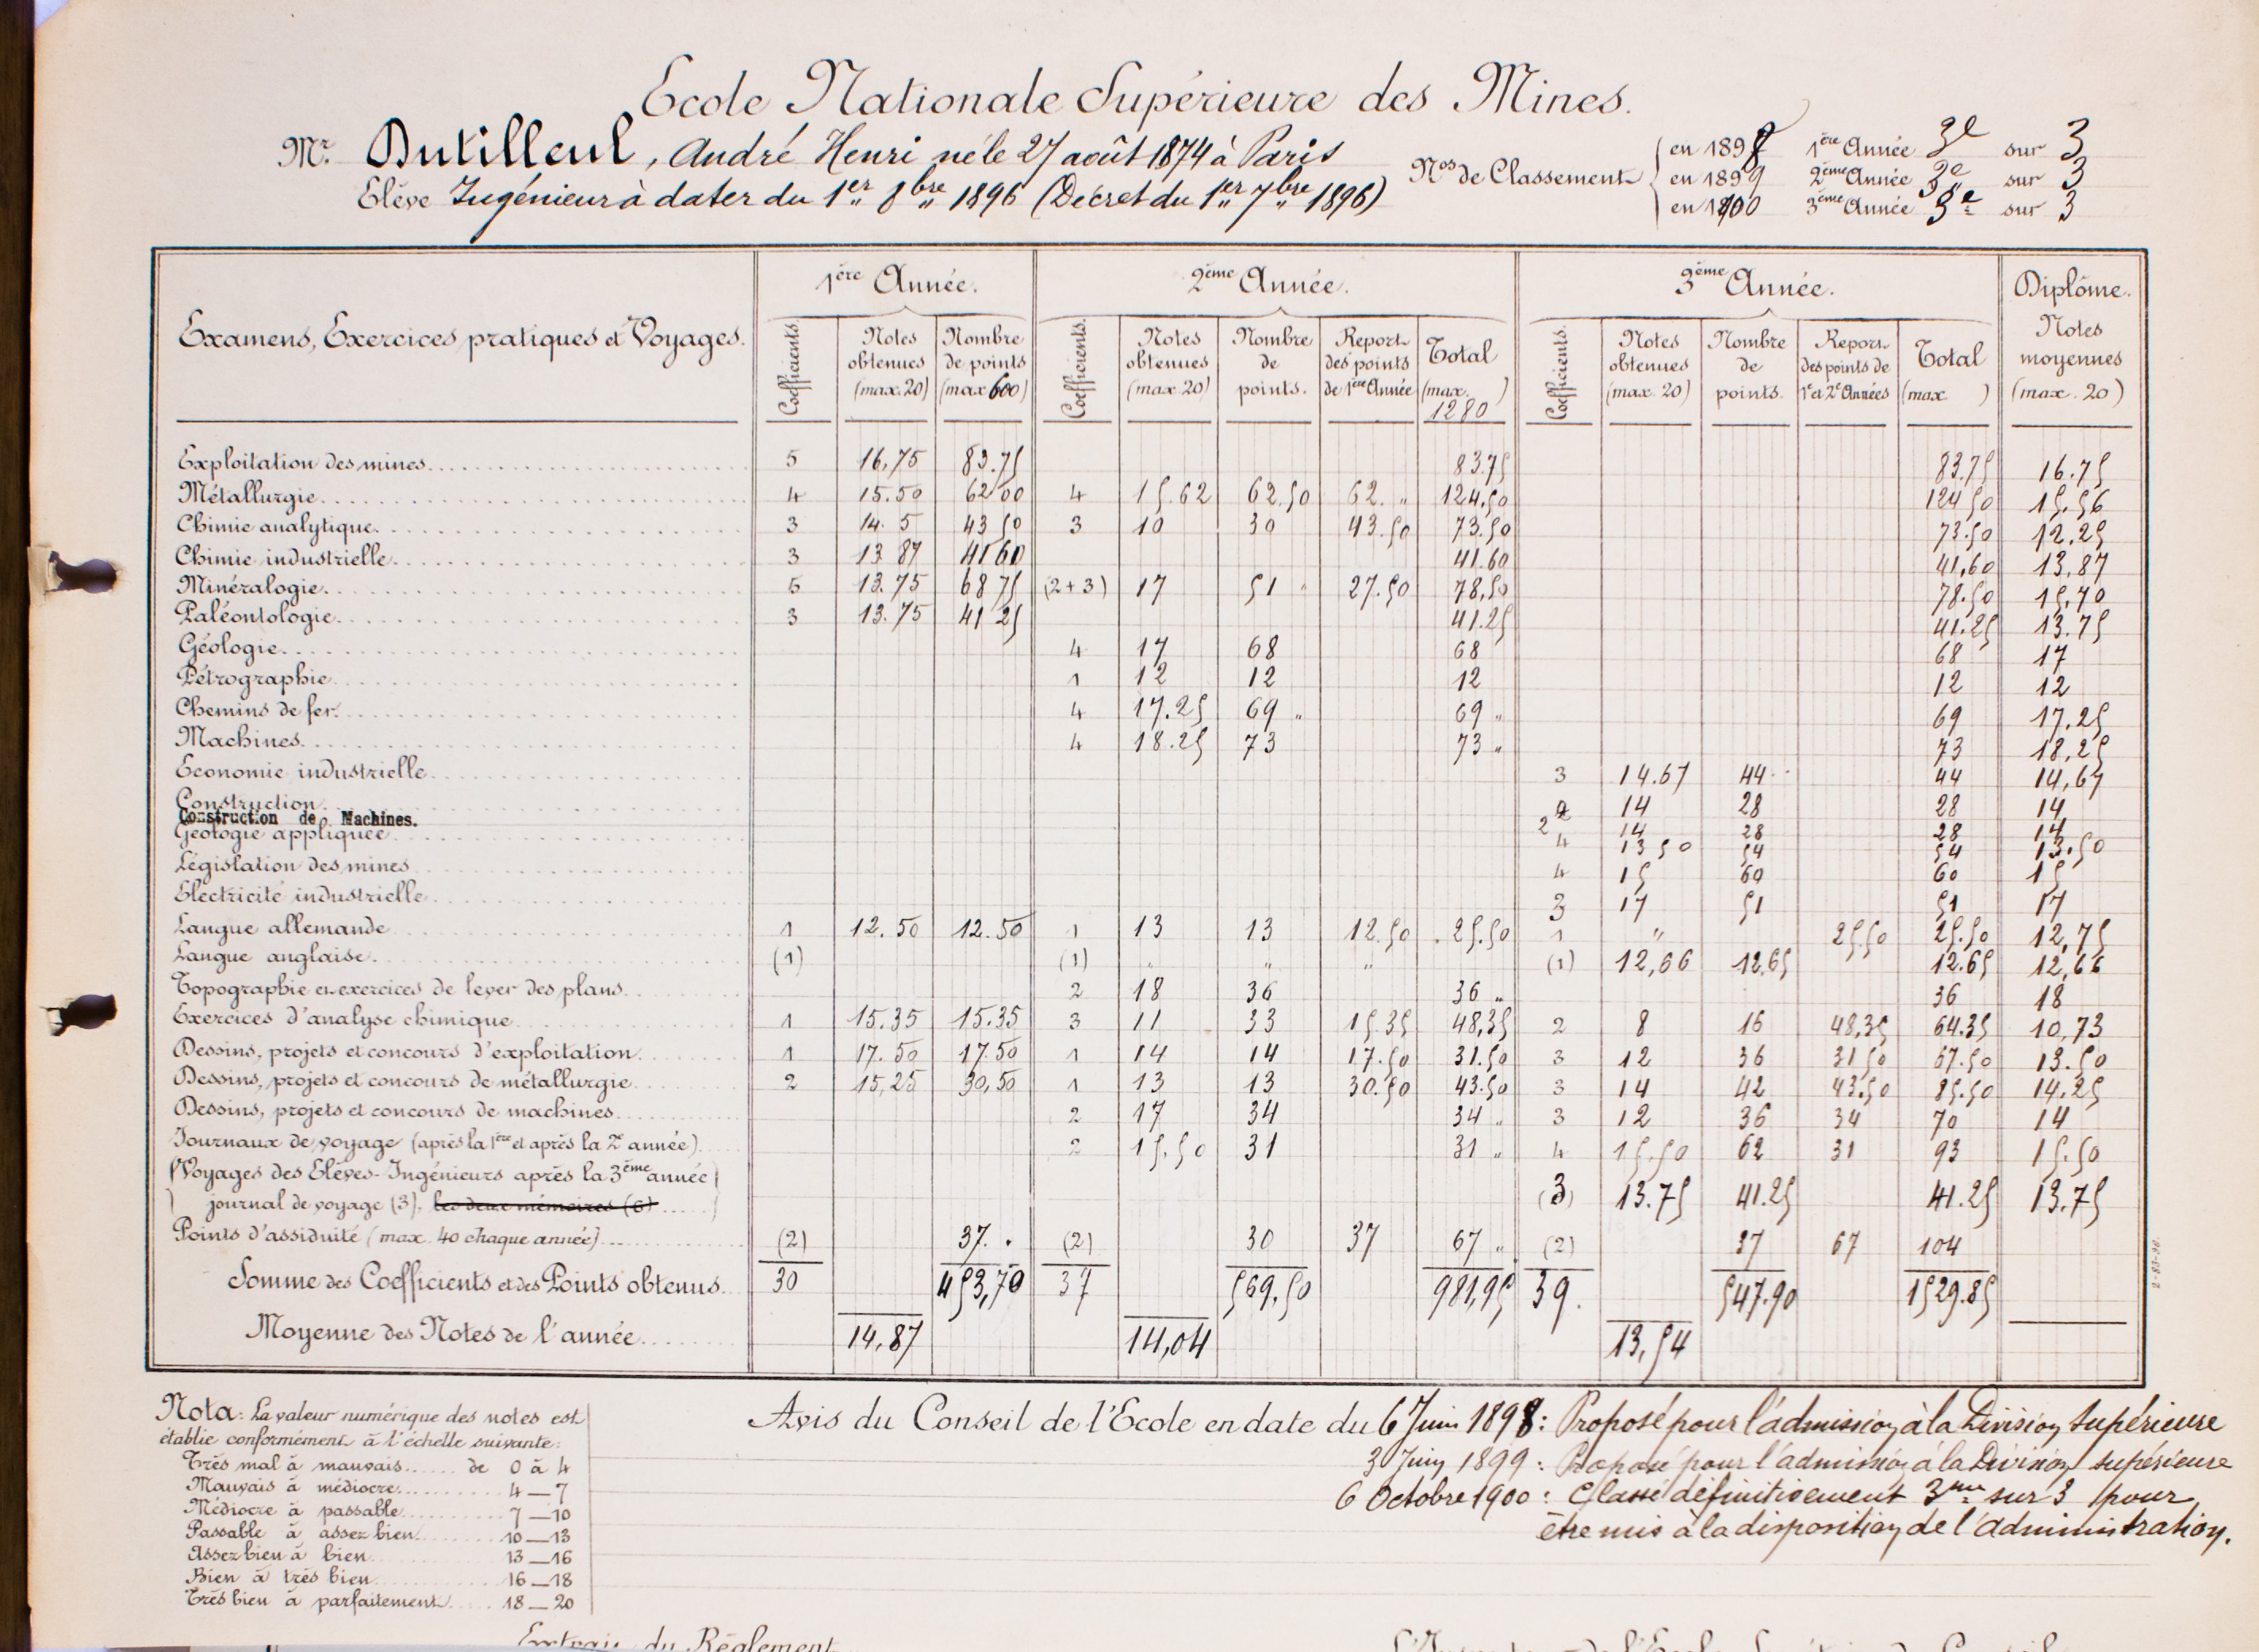 Ecole Nationale Supérieure des Mines.
Mr. Dutilleul, André Henri né le 27 août 1874 à Paris
Elève Ingénieur à dater du 1er 8bre 1896 (Décret du 1er 7bre 1896)
Nos de Classement
en 1898 1ère Année 3e sur 3
en 1899 2ème Année 3e sur 3
en 1900 3ème Année 3e sur 3
Examens, Exercices pratiques et Voyages. 1ère Année. 2ème Année. 3ème Année. Diplôme.
Coefficients Notes obtenues (max. 20) Nombre de points (max 600) Coefficients. Notes obtenues (max. 20) Nombre de points. Report des points de 1ère Année Total (max. 1280) Coefficients. Notes obtenues (max. 20) Nombre de points. Report des points de 1e et 2e Années Total (max ) Notes moyennes (max. 20)
Exploitation des mines 5 16,75 83.75 83.75 83.75 16.75
Métallurgie 4 15.50 62 00 4 15.62 62.50 62. " 124.50 124 50 15.56
Chimie analytique 3 14. 5 43 50 3 10 30 43.50 73.50 73.50 12.25
Chimie industrielle 3 13 87 41 60 41.60 41,60 13,87
Minéralogie 5 13.75 68 75 (2+3) 17 51 " 27.50 78,50 78.50 15,70
Paléontologie 3 13.75 41 25 41.25 41.25 13.75
Géologie 4 17 68 68 68 17
Pétrographie 1 12 12 12 12 12
Chemins de fer. 4 17.25 69 " 69 " 69 17,25
Machines 4 18.25 73 73 " 73 18,25
Economie industrielle 3 14.67 44 44 14,67
Construction 2 14 28 28 14
Construction de Machines. 2 14 28 28 14
Géologie appliquée 4 13 50 54 54 13.50
Législation des mines 4 15 60 60 15
Electricité industrielle 3 17 51 51 17
Langue allemande 1 12.50 12.50 1 13 13 12.50 25.50 1 " 25.50 25.50 12,75
Langue anglaise (1) (1) " " " (1) 12,66 12,65 12.65 12,66
Topographie et exercices de lever des plans 2 18 36 36 " 36 18
Exercices d'analyse chimique 1 15.35 15.35 3 11 33 15.35 48,35 2 8 16 48,35 64.35 10,73
Dessins, projets et concours d'exploitation 1 17.50 17.50 1 14 14 17.50 31.50 3 12 36 31 50 67.50 13.50
Dessins, projets et concours de métallurgie 2 15,25 30,50 1 13 13 30.50 43.50 3 14 42 43.50 85.50 14.25
Dessins, projets et concours de machines 2 17 34 34 " 3 12 36 34 70 14
Journaux de voyage (après la 1ère et après la 2e année) 2 15.50 31 31 " 4 15.50 62 31 93 15.50
Voyages des Elèves-Ingénieurs après la 3ème année
journal de voyage (3), les deux mémoires (6) (3) 13.75 41.25 41.25 13.75
Points d'assiduité (max. 40 chaque année) (2) 37. (2) 30 37 67 " (2) 37 67 104
Somme des Coefficients et des Points obtenus 30 453,70 37 569.50 981,95 39. 547.90 1529.85
Moyenne des Notes de l'année 14,87 14,04 13,54
Nota: La valeur numérique des notes est
établie conformément à l'échelle suivante:
Très mal à mauvais de 0 à 4
Mauvais à médiocre 4 — 7
Médiocre à passable 7 — 10
Passable à assez bien 10 — 13
Assez bien à bien 13 — 16
Bien à très bien 16 — 18
Très bien à parfaitement 18 — 20
Avis du Conseil de l'Ecole en date du 6 Juin 1898: Proposé pour l'admission à la Division Supérieure
3 Juin 1899: Proposé pour l'admission à la Division supérieure
6 Octobre 1900: Classé définitivement 3me sur 3 pour
être mis à la disposition de l'Administration.
Extrait du Règlement